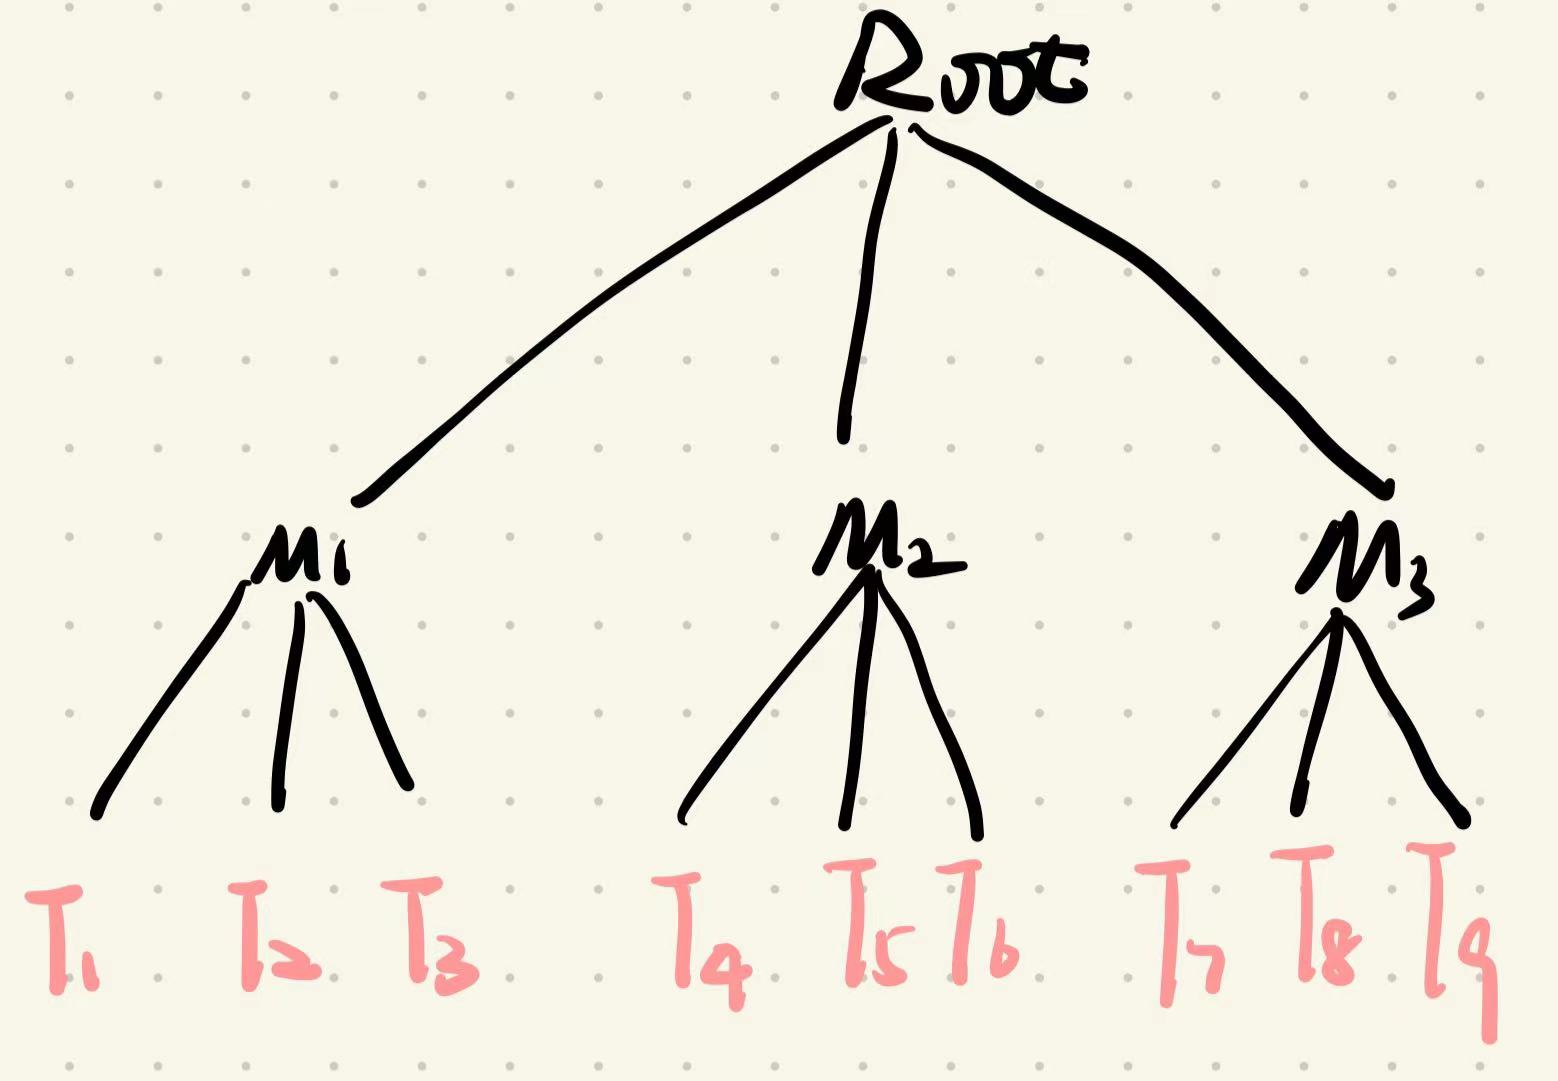 Root
M1 M2 M3
T1 T2 T3 T4 T5 T6 T7 T8 T9